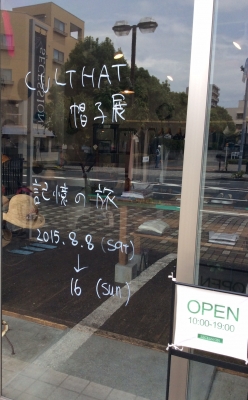 CULTHAT
帽子展
記憶の旅
2015.8.8 (sat)
↓
16 (sun)
OPEN
10:00-19:00